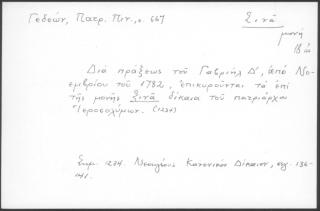 Γεδεών, Πατρ. Πιν., σ. 667
Σινᾶ
μονή
18 αἰ
Διά πράξεως τοῦ Γαβριήλ Δ', ἀπό Νο-
εμβρίου τοῦ 1782, ἐπικυροῦνται τά ἐπί
τῆς μονῆς Σινᾶ δίκαια τοῦ πατριάρχου
Ἱεροσολύμων. (1237)
Σημ. 1274. Νεοελλήνος Κανονικόν Δίκαιον, σελ. 136-
141.